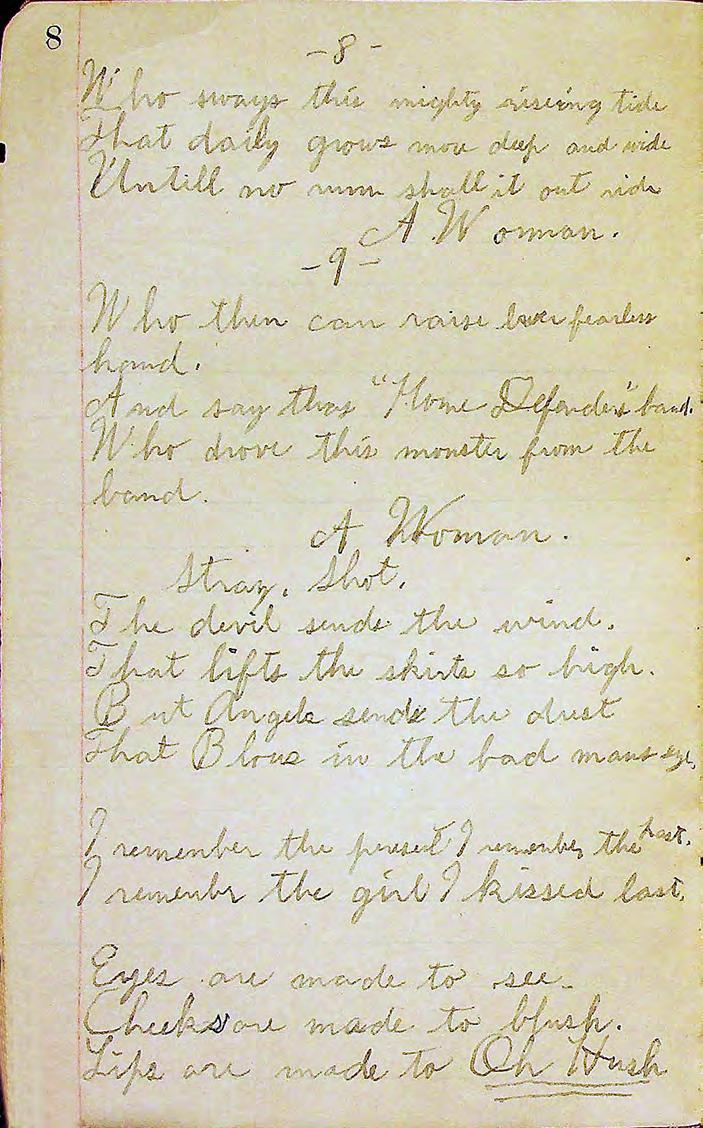 8
-8-
Who sways this mighty riseing tide
That daily grows more deep and wide
Untill no rum shall it out ride
A Woman.
-9-
Who then can raise her fearless
hand.
And say thas "Home Defenders" band.
Who drove this monster from the
band.
A Woman.
Stray. Shot.
The devil sends the wind.
That lifts the skirts so high.
But Angels sends the dust
That Blows in the bad mans eye.
I remember the present I remember the past.
I remember the girl I kissed last.
Eyes are made to see.
Cheeks are made to blush.
Lips are made to Oh Hush